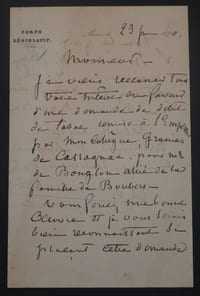 CORPS
LÉGISLATIF.
23 1870.
Monsieur
Je viens réclamer tout
votre intérêt en faveur
d'une demande de débit
de tabac remise à l'Empereur
par mon Collègue, Granier
de Cassagnac, pour
de Bouglon de la
famille de
Vous ferez une bonne
Œuvre et je vous serais
bien reconnaissant
plaçant cette demande